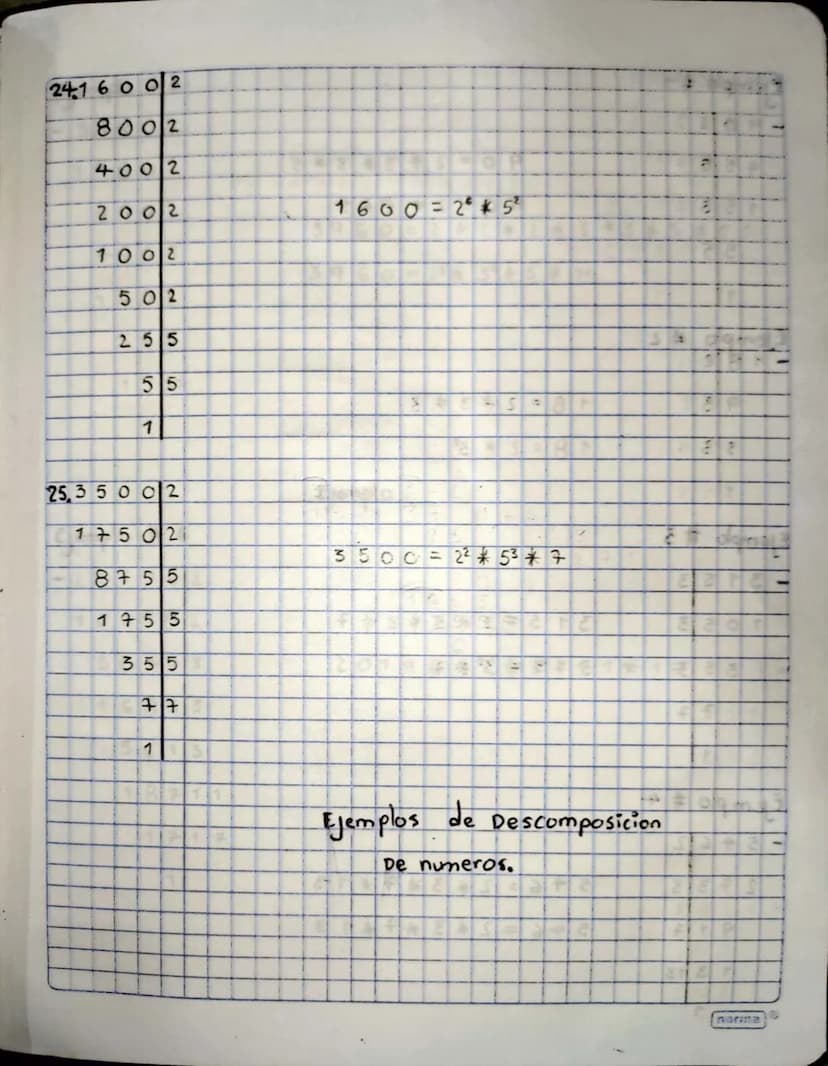 24.1600|2
800|2
400|2
200|2
1600=2⁶*5²
100|2
50|2
25|5
5|5
1
25.3500|2
1750|2
3500=2²*5³*7
875|5
175|5
35|5
7|7
1
Ejemplos de Descomposicion
De numeros.
norma